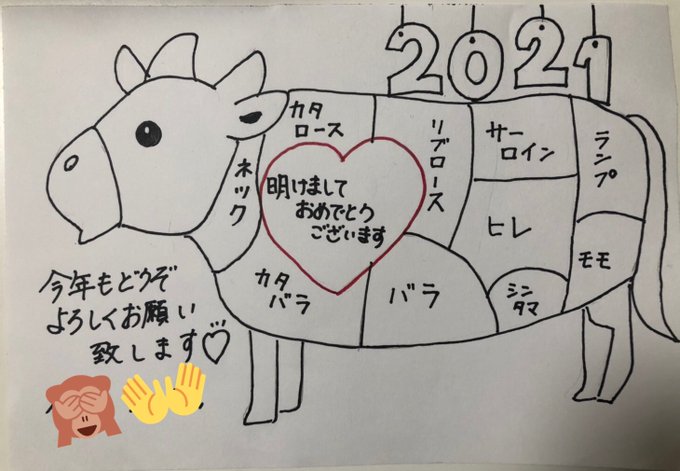 2021
カタ
ロース
リブロース
サー
ロイン
ランプ
ネック
明けまして
おめでとう
ございます
ヒレ
モモ
カタ
バラ
バラ
シン
タマ
今年もどうぞ
よろしくお願い
致します♡